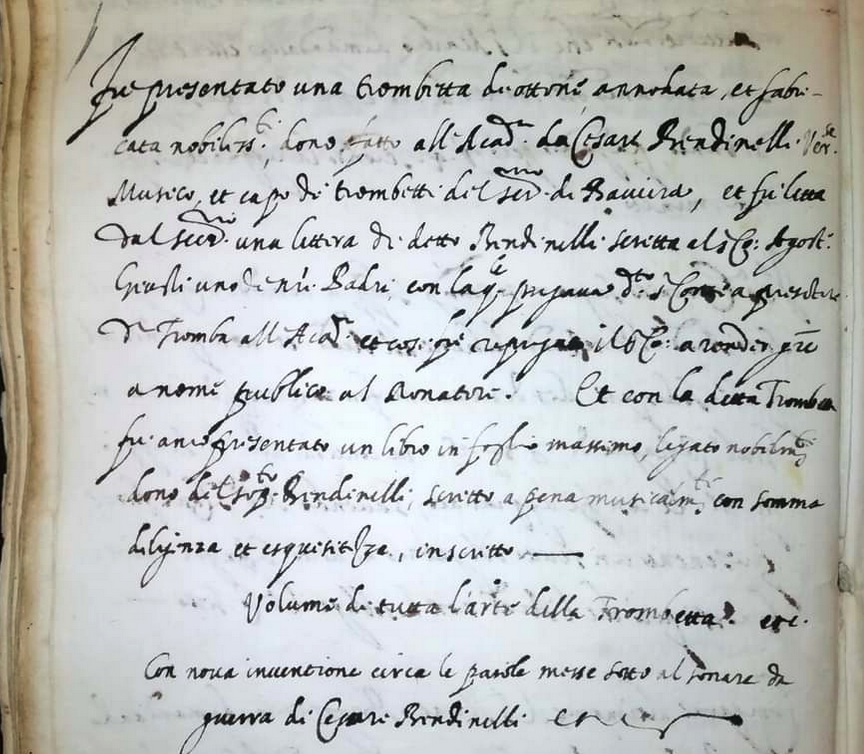 Fu presentato una trombetta de ottone annodata, et fabri-
cata nobiliss.te dono fatto all'Acad.a da Cesare Bendinelli Ver.se
Musico, et capo de trombetti del ser.mo di Baviera, et fu letta
dal secr.rio una littera di detto Bendinelli scritta al s.r Co: Agost.o
Giusti uno de nri Padri, con la q.le pregava d.to s.r Conte a presētare
d.a Tromba all'Acad.a et cos. fu il s.r Co: a render grē
a nome publico al Donatore. Et con la detta Trombetta
fu anco presentato un libro in foglio massimo, legato nobilm.te
dono del sop.to Bendinelli, scritto a pena musicalm.te con somma
diligenza et esquisitezza, inscritto
Volume di tutta l'arte della Trombetta. etc.
Con nova inventione circa le parole messe sotto al sonare da
guerra di Cesare Bendinelli etc